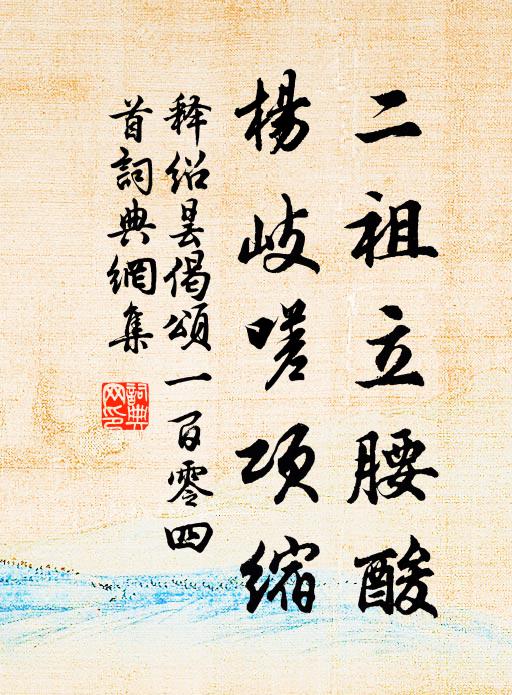 二祖立腰酸
楊岐嗟項縮
释绍昙偈頌一百零四
首詞典網集
詞典
网印